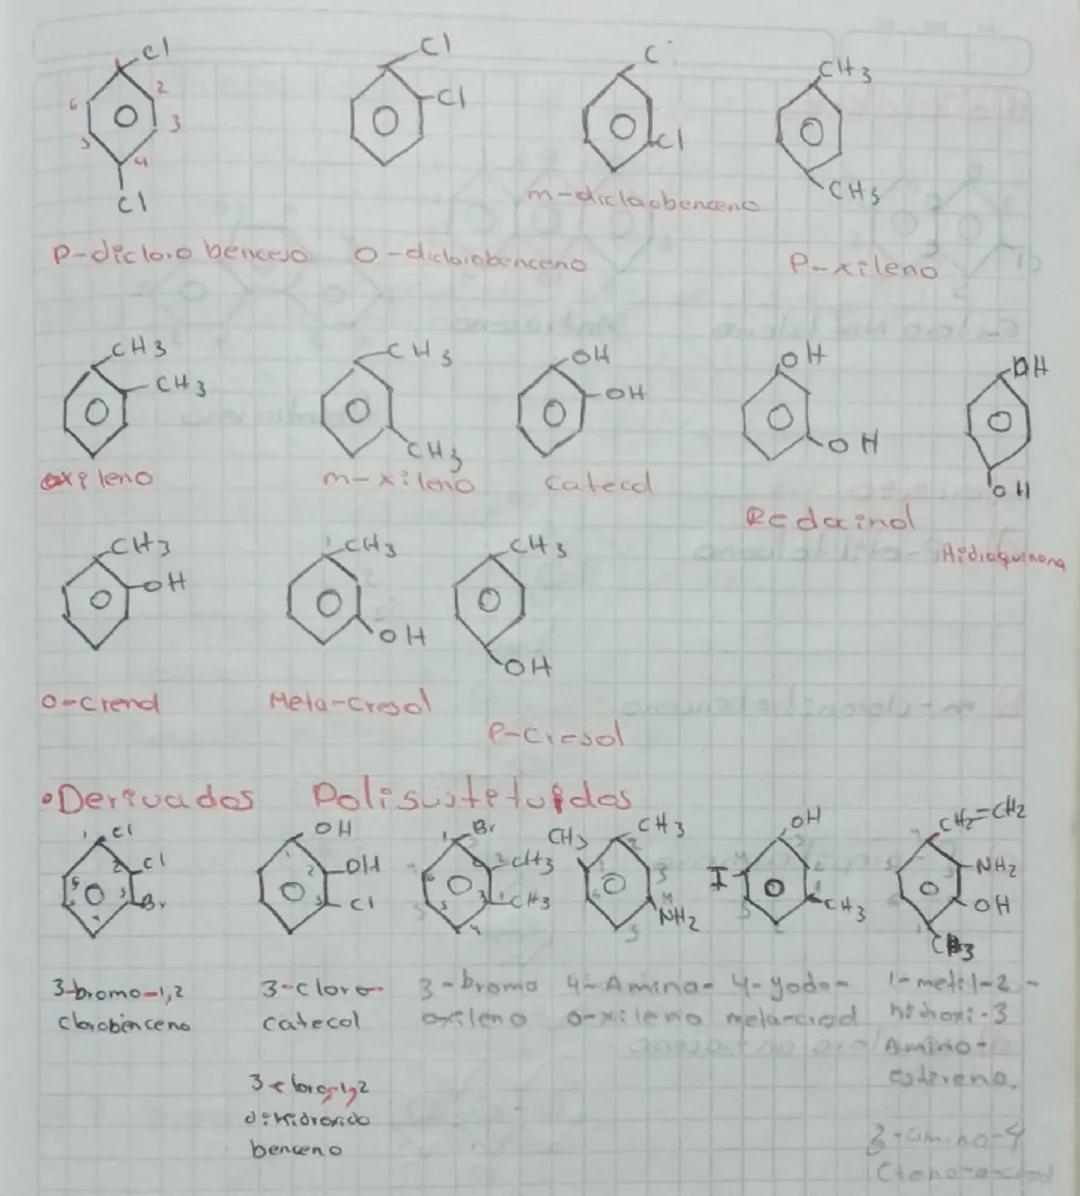 Cl
1
2
3
4
5
6
Cl
P-dicloro benceso
Cl
Cl
O-diclorobenceno
C
Cl
m-diclaobenceno
CH3
CH3
P-xileno
CH3
CH3
oxileno
CH3
CH3
m-xileno
OH
OH
catecol
OH
OH
OH
OH
Hidroquinona
CH3
OH
1
CH3
2
OH
Meta-Cresol
CH3
OH
P-Cresol
•Derivados Polisustituidos
1
Cl
2
Cl
3
Br
4
5
6
3-bromo-1,2
clorobenceno
OH
1
2
OH
3
Cl
3-cloro-
catecol
3-cloro-1,2
dihidroxido
benceno
1
Br
2
CH3
3
CH3
4
5
6
3-bromo
o-xileno
CH3
1
CH3
2
3
4
NH2
5
6
4-Amino-
o-xileno
OH
I
2
CH3
4-yodo-
CH2=CH2
NH2
OH
1-metil-2-
hidroxi-3
Amino-
estireno.
3-amino-4